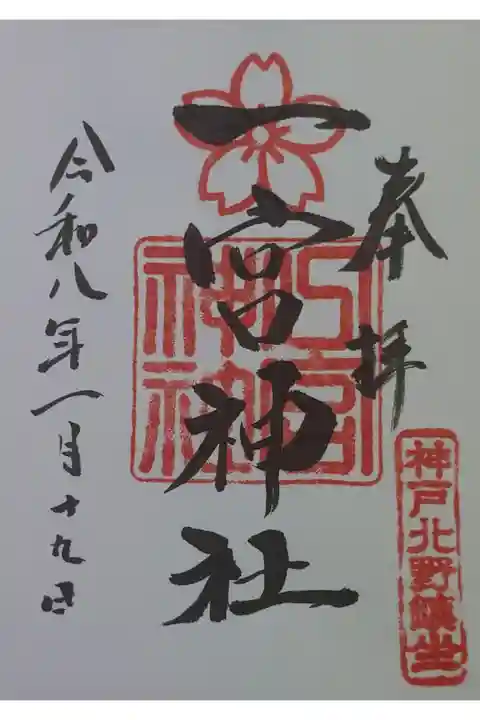 奉拝
一宮神社
令和八年一月十九日
神戸北野鎮坐